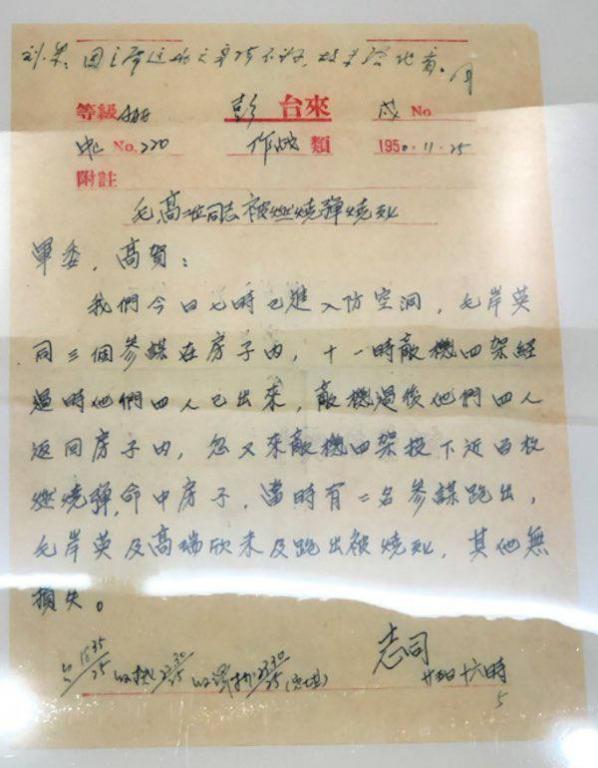 等級AAAA 彭台來 戌No
No.220 作戰類 1950.11.25
附註
毛、高二位同志被燃燒彈燒死
軍委,高賀:
我們今日七時已進入防空洞,毛岸英
同三個參謀在房子內,十一時敵機四架經
過時他們四人已出來,敵機過後他們四人
返回房子內,忽又來敵機四架投下近百枚
燃燒彈,命中房子,當時有二名參謀跑出,
毛岸英及高瑞欣未及跑出被燒死,其他無
損失。
志司
廿五日十六時
5